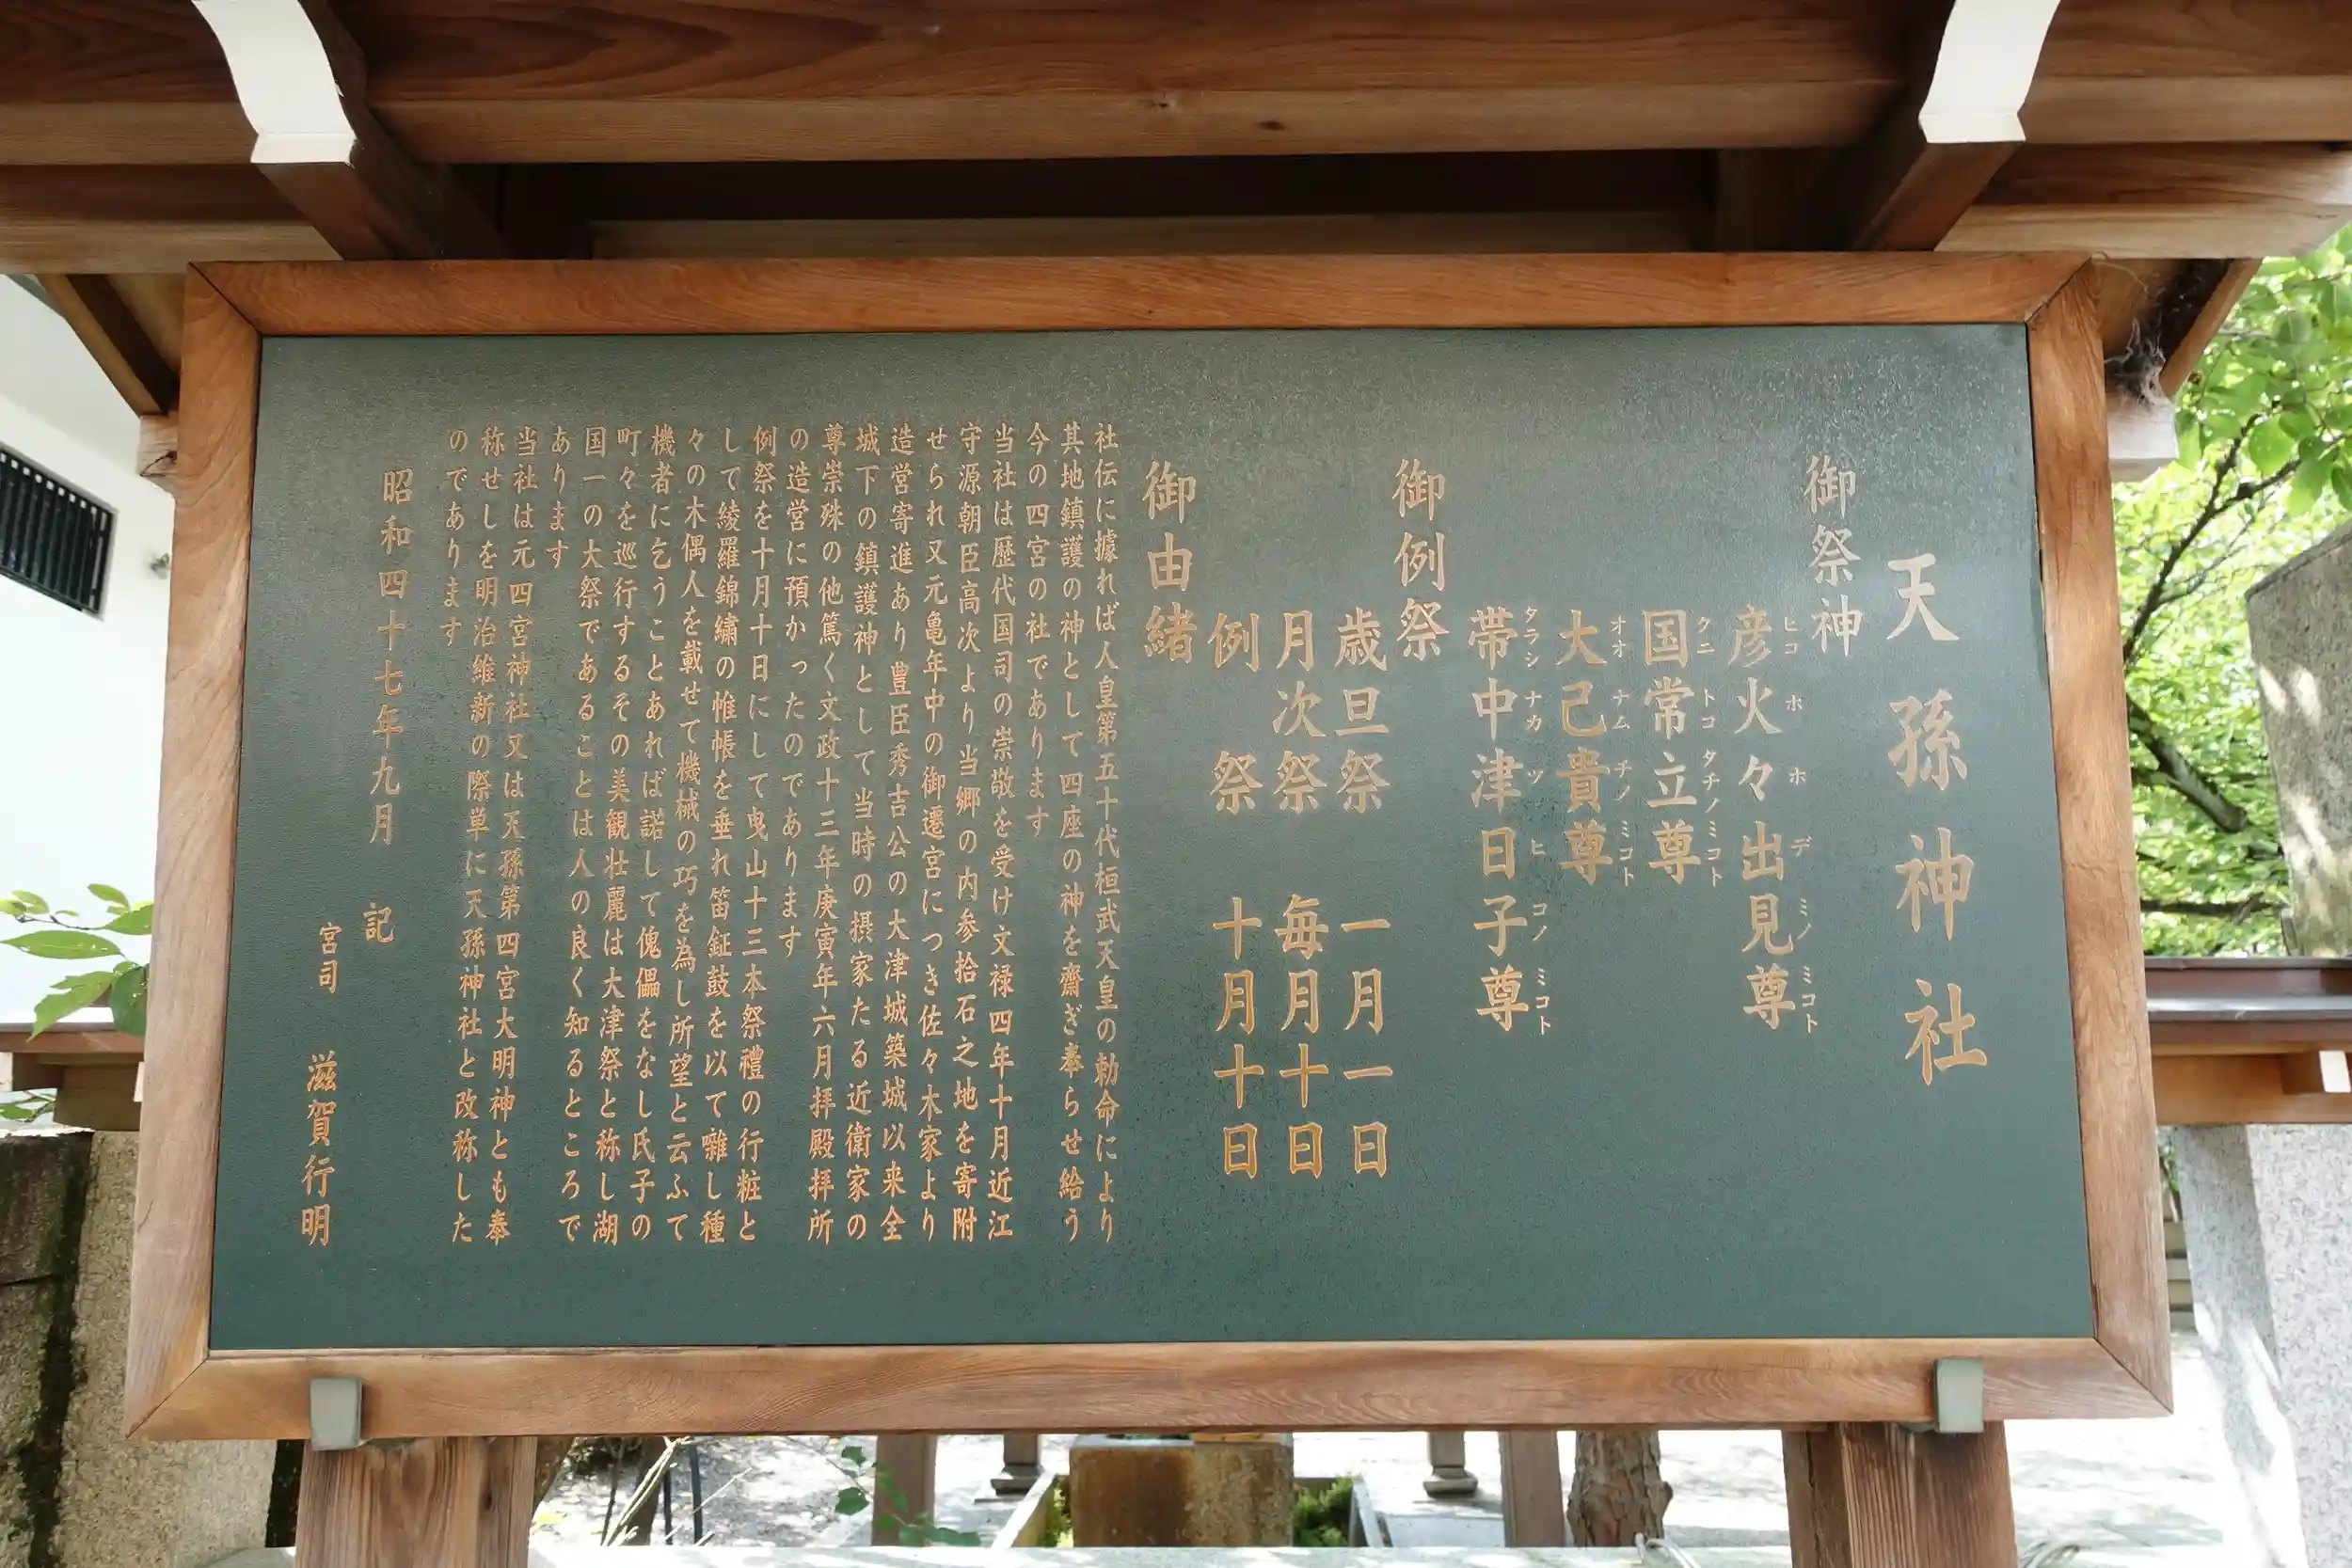 天孫神社
御祭神
彦火々出見尊
ヒコホホデミノミコト
国常立尊
クニトコタチノミコト
大己貴尊
オオナムチノミコト
帯中津日子尊
タラシナカツヒコノミコト
御例祭
歳旦祭 一月一日
月次祭 毎月十日
例祭 十月十日
御由緒
社伝に據れば人皇第五十代桓武天皇の勅命により
其地鎮護の神として四座の神を齋ぎ奉らせ給う
今の四宮の社であります
当社は歴代国司の崇敬を受け文禄四年十月近江
守源朝臣高次より当郷の内参拾石之地を寄附
せられ又元亀年中の御遷宮につき佐々木家より
造営寄進あり豊臣秀吉公の大津城築城以来全
城下の鎮護神として当時の摂家たる近衛家の
尊崇殊の他篤く文政十三年庚寅年六月拝殿拝所
の造営に預かったのであります
例祭を十月十日にして曳山十三本祭禮の行粧と
して綾羅錦繍の帷帳を垂れ笛鉦鼓を以て囃し種
々の木偶人を載せて機械の巧を為し所望と云ふて
機者に乞うことあれば諾して傀儡をなし氏子の
町々を巡行するその美観壮麗は大津祭と称し湖
国一の大祭であることは人の良く知るところで
あります
当社は元四宮神社又は天孫第四宮大明神とも奉
称せしを明治維新の際単に天孫神社と改称した
のであります
昭和四十七年九月 記
宮司 滋賀行明